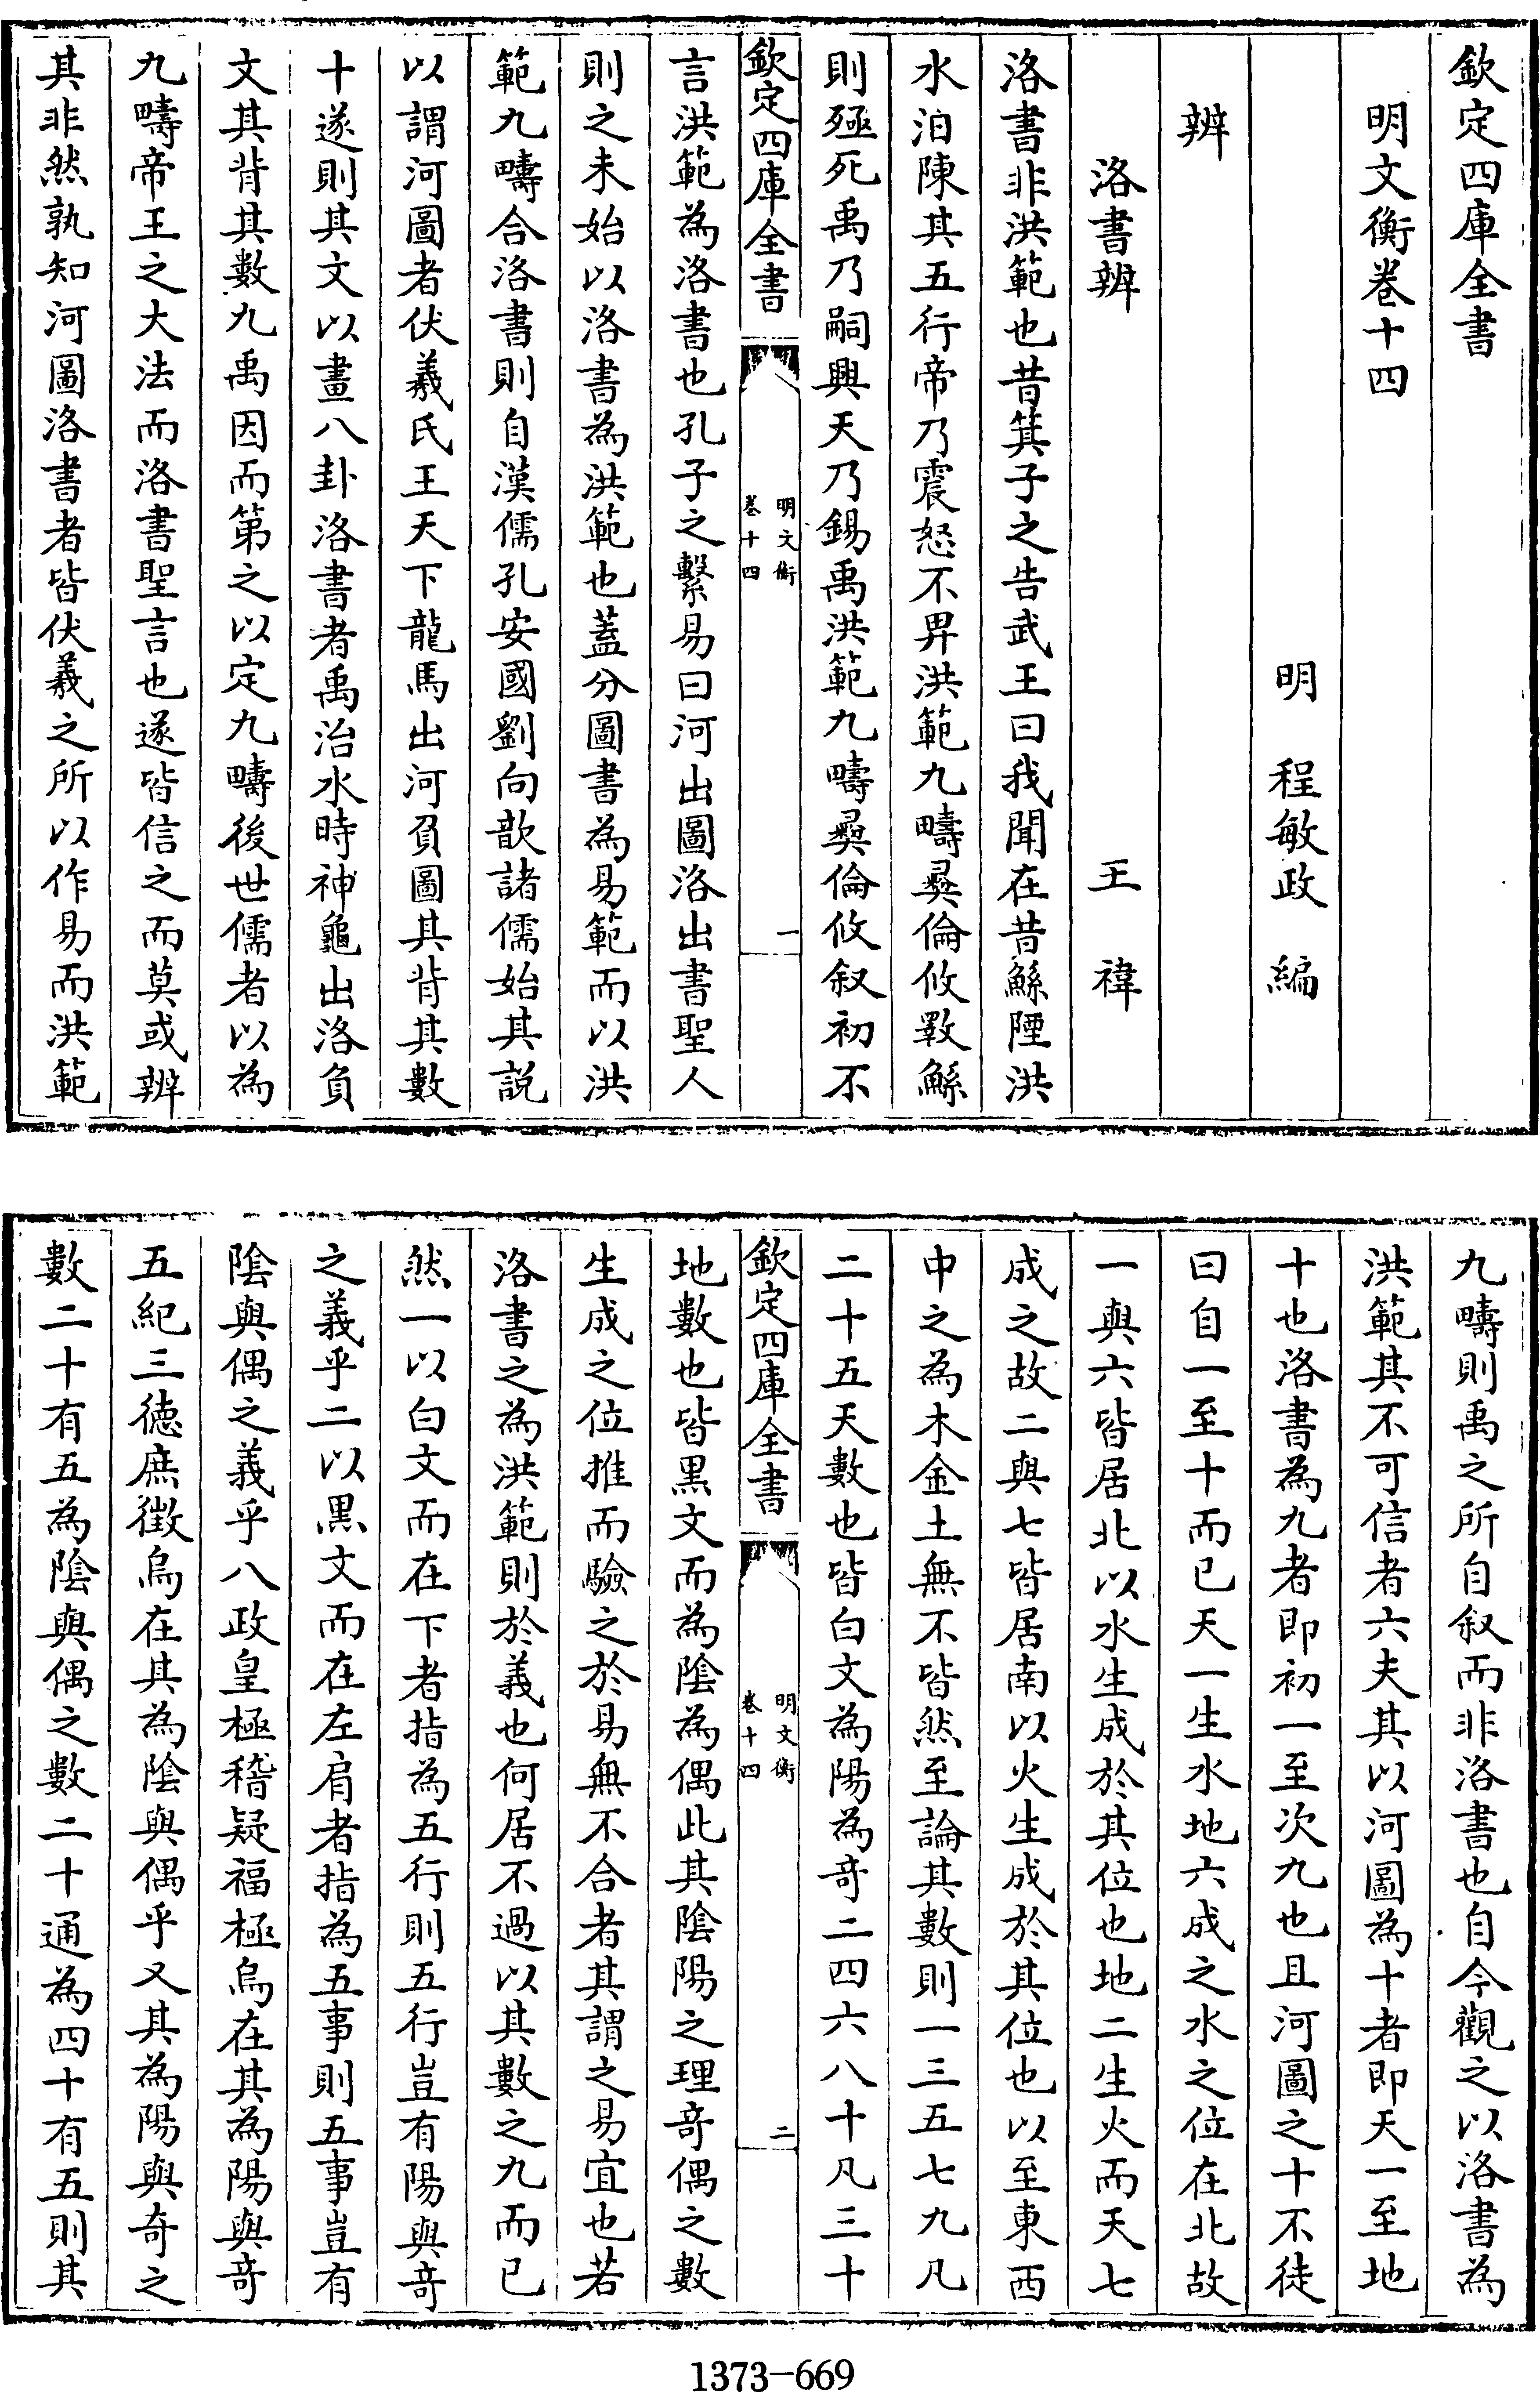 欽定四庫全書
明文衡卷十四
明 程敏政 編
辨
洛書辨 王 禕
洛書非洪範也昔箕子之告武王曰我聞在昔鯀陻洪
水汩陳其五行帝乃震怒不畀洪範九疇彞倫攸斁鯀
則殛死禹乃嗣興天乃錫禹洪範九疇彞倫攸叙初不
欽定四庫全書 明文衡 卷十四 一
言洪範為洛書也孔子之繫易曰河出圖洛出書聖人
則之未始以洛書為洪範也蓋分圖書為易範而以洪
範九疇合洛書則自漢儒孔安國劉向歆諸儒始其説
以謂河圖者伏羲氏王天下龍馬出河負圖其背其數
十遂則其文以畫八卦洛書者禹治水時神龜出洛負
文其背其數九禹因而第之以定九疇後世儒者以為
九疇帝王之大法而洛書聖言也遂皆信之而莫或辨
其非然孰知河圖洛書者皆伏羲之所以作易而洪範
九疇則禹之所自叙而非洛書也自今觀之以洛書為
洪範其不可信者六夫其以河圖為十者即天一至地
十也洛書為九者即初一至次九也且河圖之十不徒
曰自一至十而已天一生水地六成之水之位在北故
一與六皆居北以水生成於其位也地二生火而天七
成之故二與七皆居南以火生成於其位也以至東西
中之為木金土無不皆然至論其數則一三五七九凡
二十五天數也皆白文為陽為奇二四六八十凡三十
欽定四庫全書 明文衡 卷十四 二
地數也皆黒文而為陰為偶此其陰陽之理奇偶之數
生成之位推而驗之於易無不合者其謂之易宜也若
洛書之為洪範則於義也何居不過以其數之九而已
然一以白文而在下者指為五行則五行豈有陽與奇
之義乎二以黒文而在左肩者指為五事則五事豈有
陰與偶之義乎八政皇極稽疑福極烏在其為陽與奇
五紀三徳庶徵烏在其為陰與偶乎又其為陽與奇之
數二十有五為陰與偶之數二十通為四十有五則其
1373-669